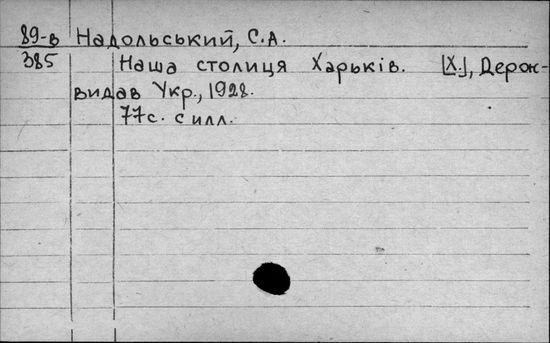 89-в Надольський, С.А.
385 Наша столиця Харьків. [Х.], Держ-
видав Укр., 1928.
77с. с илл.